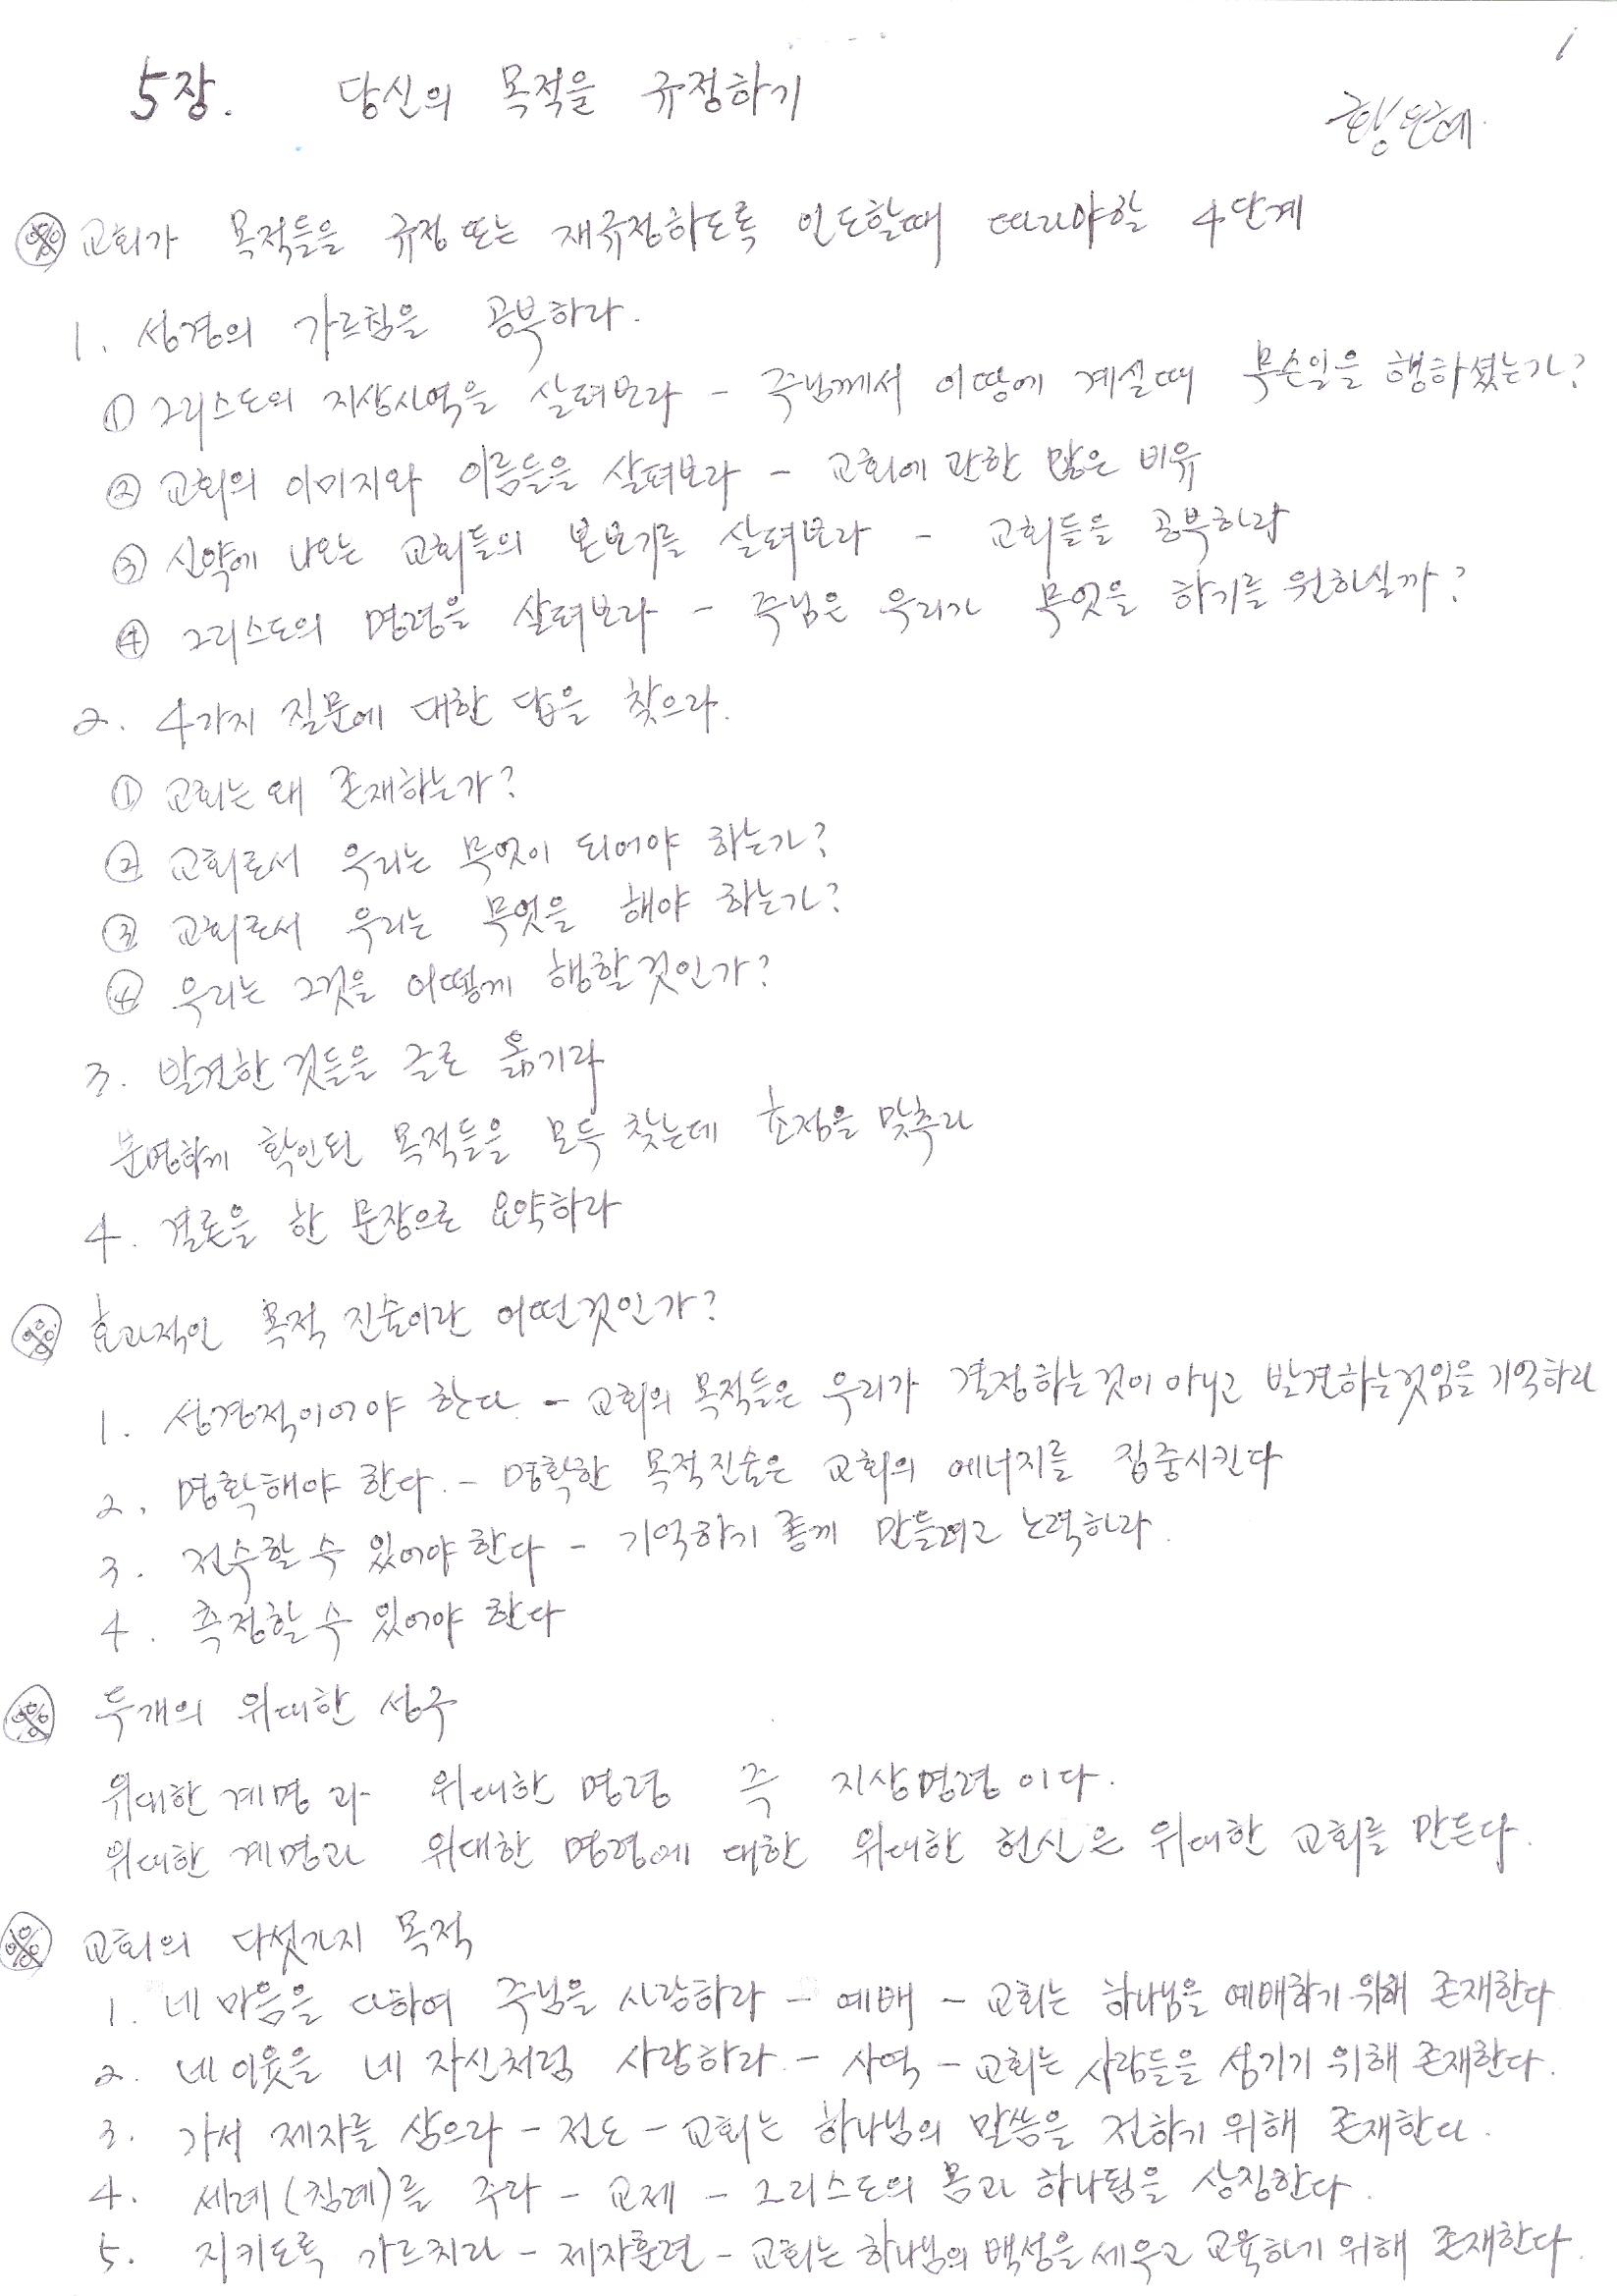 1
5장. 당신의 목적을 규정하기
황은혜
※ 교회가 목적들을 규정 또는 재규정하도록 인도할때 따라야할 4단계
1. 성경의 가르침을 공부하라.
① 그리스도의 지상사역을 살펴보라 - 주님께서 이땅에 계실때 무슨일을 행하셨는가?
② 교회의 이미지와 이름들을 살펴보라 - 교회에 관한 많은 비유
③ 신약에 나오는 교회들의 본보기를 살펴보라 - 교회들을 공부하라
④ 그리스도의 명령을 살펴보라 - 주님은 우리가 무엇을 하기를 원하실까?
2. 4가지 질문에 대한 답을 찾으라.
① 교회는 왜 존재하는가?
② 교회로서 우리는 무엇이 되어야 하는가?
③ 교회로서 우리는 무엇을 해야 하는가?
④ 우리는 그것을 어떻게 행할것인가?
3. 발견한 것들을 글로 옮기라
분명하게 확인된 목적들을 모두 찾는데 초점을 맞추라
4. 결론을 한 문장으로 요약하라
※ 효과적인 목적 진술이란 어떤것인가?
1. 성경적이어야 한다. - 교회의 목적들은 우리가 결정하는것이 아니고 발견하는것임을 기억하라
2. 명확해야 한다. - 명확한 목적진술은 교회의 에너지를 집중시킨다
3. 전수할 수 있어야 한다 - 기억하기 좋게 만들려고 노력하라.
4. 측정할 수 있어야 한다
※ 두개의 위대한 성구
위대한 계명과 위대한 명령 즉 지상명령이다.
위대한 계명과 위대한 명령에 대한 위대한 헌신은 위대한 교회를 만든다.
※ 교회의 다섯가지 목적
1. 네 마음을 다하여 주님을 사랑하라 - 예배 - 교회는 하나님을 예배하기 위해 존재한다
2. 네 이웃을 네 자신처럼 사랑하라. - 사역 - 교회는 사람들을 섬기기 위해 존재한다.
3. 가서 제자를 삼으라 - 전도 - 교회는 하나님의 말씀을 전하기 위해 존재한다.
4. 세례(침례)를 주라 - 교제 - 그리스도의 몸과 하나됨을 상징한다.
5. 지키도록 가르치라 - 제자훈련 - 교회는 하나님의 백성을 세우고 교육하기 위해 존재한다.